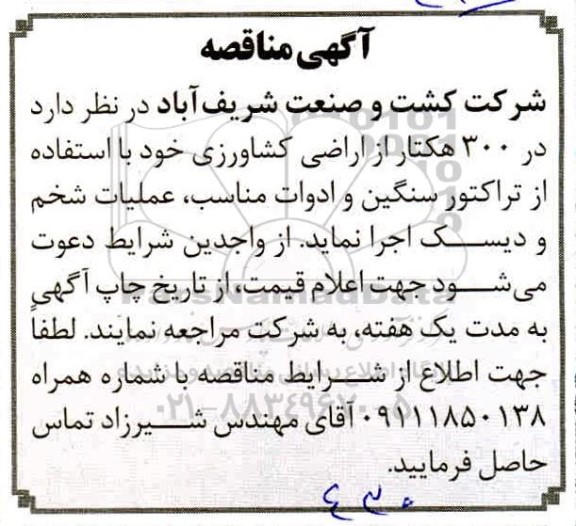 آگهی مناقصه
شرکت کشت و صنعت شریف‌آباد در نظر دارد
در ۳۰۰ هکتار از اراضی کشاورزی خود با استفاده
از تراکتور سنگین و ادوات مناسب، عملیات شخم
و دیسک اجرا نماید. از واجدین شرایط دعوت
می‌شود جهت اعلام قیمت، از تاریخ چاپ آگهی
ParsNamadData
به مدت یک هفته، به شرکت مراجعه نمایند. لطفاً
جهت اطلاع از شرایط مناقصه با شماره همراه
۰۲۱-۸۸۳۴۹۶۷۰-۵
۰۹۱۱۱۸۵۰۱۳۸ آقای مهندس شیرزاد تماس
حاصل فرمایید.